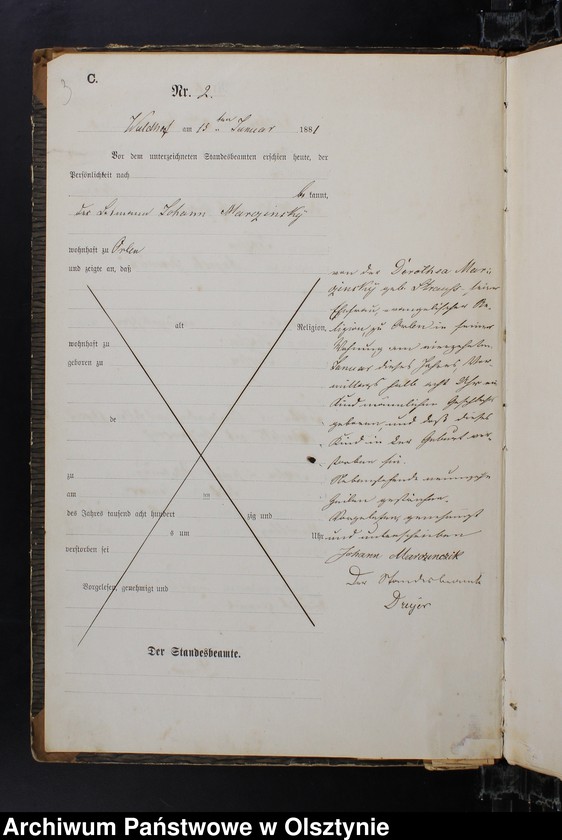 3
C.
Nr. 2.
Waldhof am 15ten Januar 1881
Vor dem unterzeichneten Standesbeamten erschien heute, der
Persönlichkeit nach
bekannt,
der Losmann Johann Marczinsky
wohnhaft zu Orlen
und zeigte an, daß
alt Religion,
wohnhaft zu
geboren zu
de
zu
am im
des Jahres tausend acht hundert zig und
s um Uhr
verstorben sei
Vorgelesen, genehmigt und
Der Standesbeamte.
von der Dorothea Mar-
zinsky geb. Strauß, seiner
Ehefrau, evangelischer Re-
ligion, zu Orlen in seiner
Wohnung am vierzehnten
Januar dieses Jahres, Vor-
mittags halb acht Uhr ein
Kind männlichen Geschlechts
geboren, und daß dieses
Kind in der Geburt ver-
storben sei.
Nebenstehende neunzehn
Zeilen gestrichen.
Vorgelesen, genehmigt
und unterschrieben
Johann Marczinczik
Der Standesbeamte
Dreyer
Archiwum Państwowe w Olsztynie